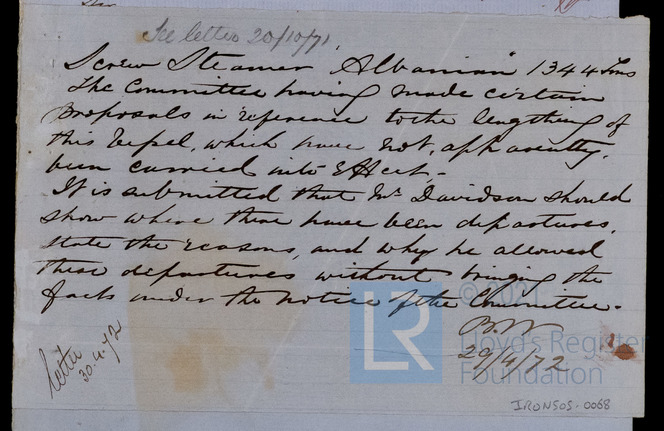 See letter 20/10/71
Screw Steamer "Albanian" 1344 Tons
The Committee having made certain
proposals in reference to the lengthing of
this Vessel, which have not, apparently,
been carried into Effect,-
It is submitted that Mr Davidson should
show where there have been departures,
state the reasons, and why he allowed
these departures without bringing the
facts under the notice of the Committee.
B.W
29/4/72
letter
30.4.72
LR
© 2021
Lloyd's Register
Foundation
IRONSOS-0068